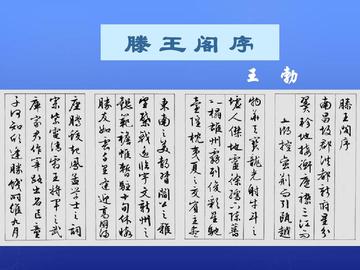 滕王阁序
王 勃
滕王阁序
南昌故郡洪都新府星分
翼轸地接衡庐襟三江而
五湖控蛮荆而引瓯越
物华天宝龙光射牛斗之
墟人杰地灵徐孺下陈蕃
之榻雄州雾列俊彩星驰
台隍枕夷夏之交宾主尽
东南之美都督阎公之雅
望棨戟遥临宇文新州之
懿范襜帷暂驻十旬休暇
胜友如云千里逢迎高朋满
座腾蛟起凤孟学士之词
宗紫电清霜王将军之武
库家君作宰路出名区童
子何知躬逢胜饯时维九月